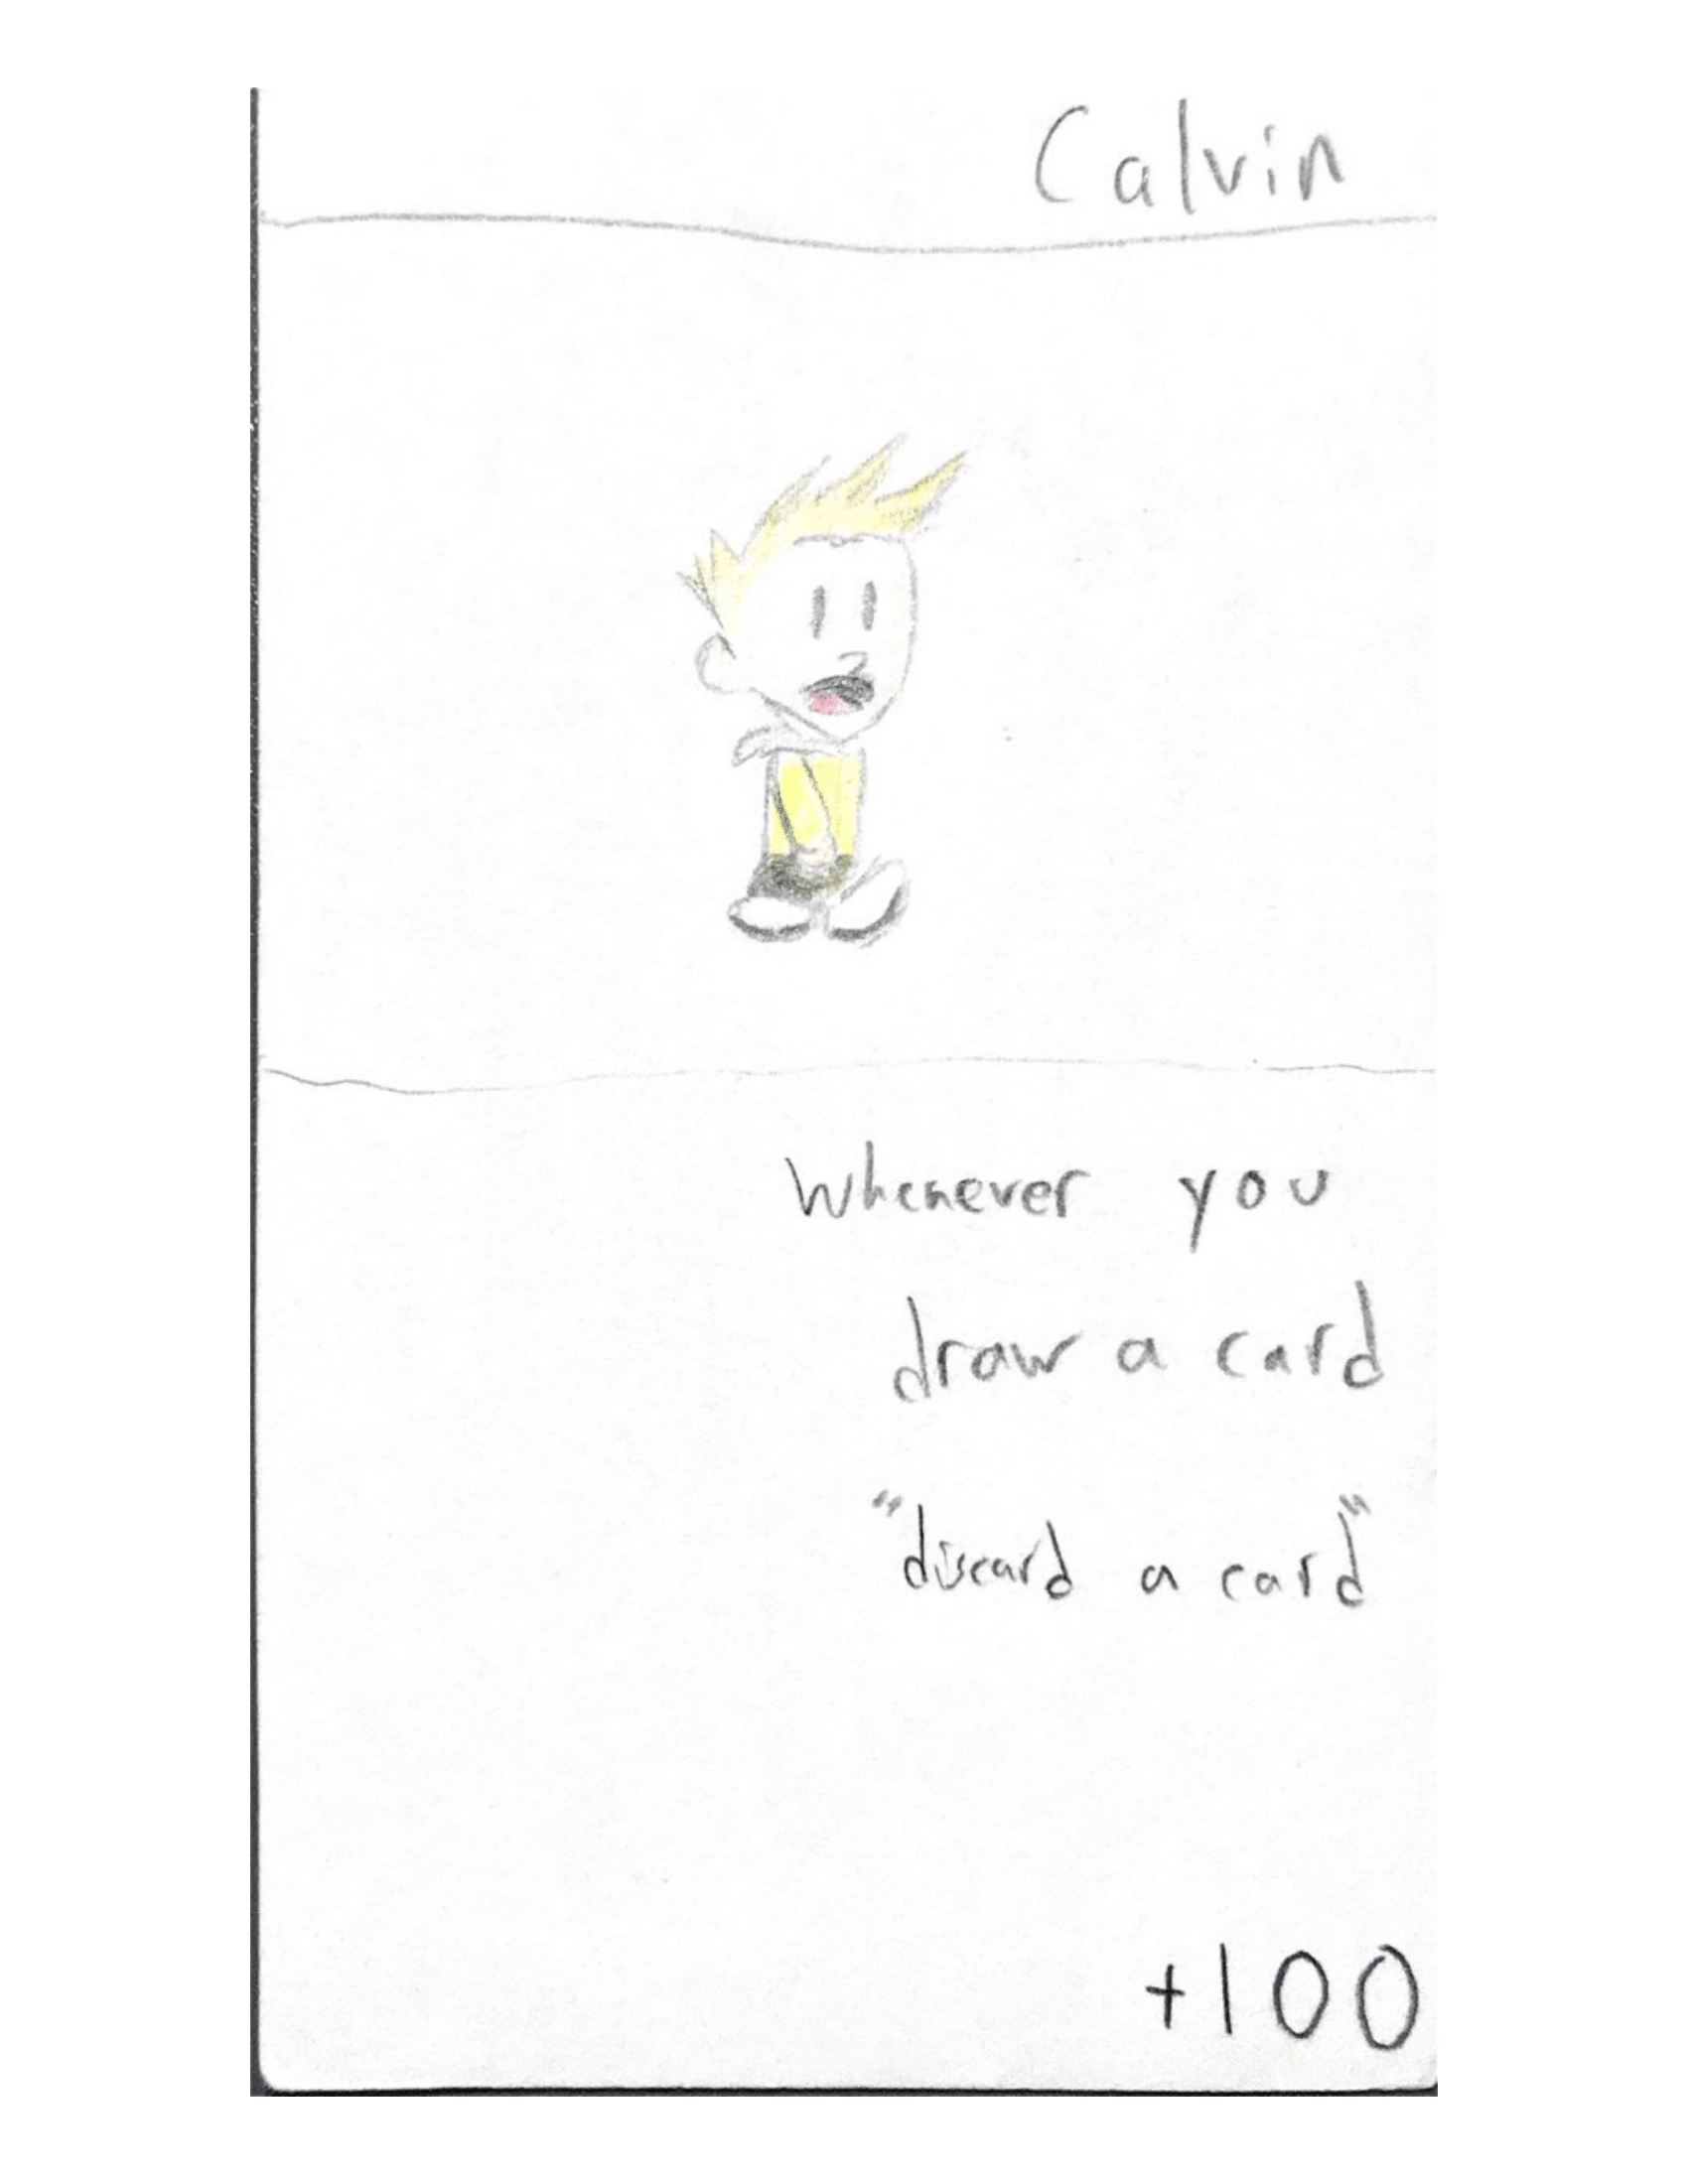 Calvin
Whenever you
draw a card
"discard a card"
+100